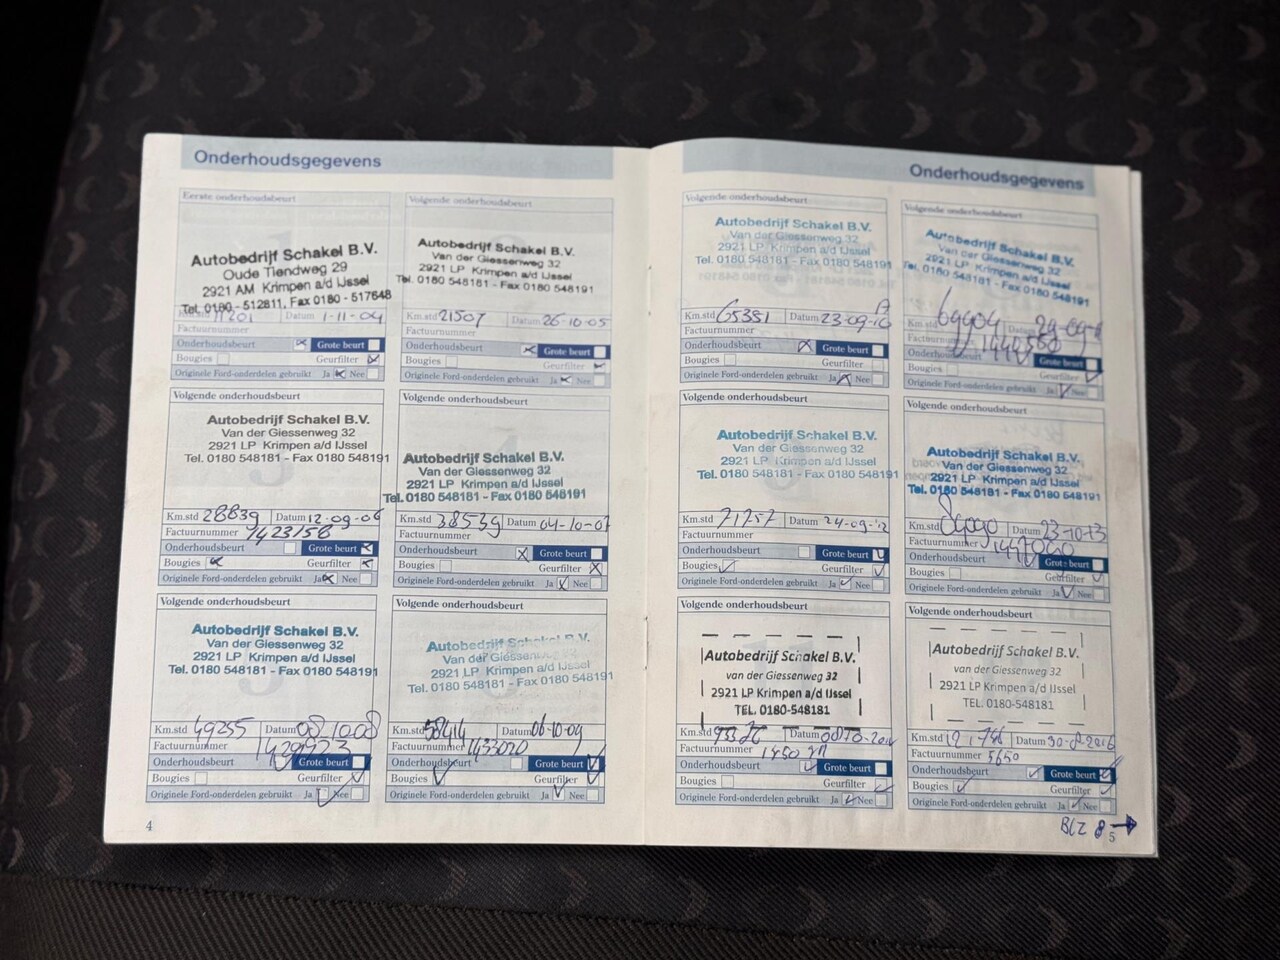 Onderhoudsgegevens
Eerste onderhoudsbeurt
Autobedrijf Schakel B.V.
Oude Tiendweg 29
2921 AM Krimpen a/d IJssel
Tel. 0180 - 512811, Fax 0180 - 517648
Km.std 11201 Datum 1-11-04
Factuurnummer
Onderhoudsbeurt Grote beurt
Bougies Geurfilter
Originele Ford-onderdelen gebruikt Ja Nee
Volgende onderhoudsbeurt
Autobedrijf Schakel B.V.
Van der Giessenweg 32
2921 LP Krimpen a/d IJssel
Tel. 0180 548181 - Fax 0180 548191
Km.std 21507 Datum 26-10-05
Factuurnummer
Onderhoudsbeurt Grote beurt
Bougies Geurfilter
Originele Ford-onderdelen gebruikt Ja Nee
Volgende onderhoudsbeurt
Autobedrijf Schakel B.V.
Van der Giessenweg 32
2921 LP Krimpen a/d IJssel
Tel. 0180 548181 - Fax 0180 548191
Km.std 28839 Datum 12-09-06
Factuurnummer 1423158
Onderhoudsbeurt Grote beurt
Bougies Geurfilter
Originele Ford-onderdelen gebruikt Ja Nee
Volgende onderhoudsbeurt
Autobedrijf Schakel B.V.
Van der Giessenweg 32
2921 LP Krimpen a/d IJssel
Tel. 0180 548181 - Fax 0180 548191
Km.std 38539 Datum 04-10-07
Factuurnummer
Onderhoudsbeurt Grote beurt
Bougies Geurfilter
Originele Ford-onderdelen gebruikt Ja Nee
Volgende onderhoudsbeurt
Autobedrijf Schakel B.V.
Van der Giessenweg 32
2921 LP Krimpen a/d IJssel
Tel. 0180 548181 - Fax 0180 548191
Km.std 49255 Datum 08-10-08
Factuurnummer 1429923
Onderhoudsbeurt Grote beurt
Bougies Geurfilter
Originele Ford-onderdelen gebruikt Ja Nee
Volgende onderhoudsbeurt
Autobedrijf Schakel B.V.
Van der Giessenweg
2921 LP Krimpen a/d IJssel
Tel. 0180 548181 - Fax 0180 548191
Km.std 58414 Datum 06-10-09
Factuurnummer 1433020
Onderhoudsbeurt Grote beurt
Bougies Geurfilter
Originele Ford-onderdelen gebruikt Ja Nee
4
Onderhoudsgegevens
Volgende onderhoudsbeurt
Autobedrijf Schakel B.V.
Van der Giessenweg 32
2921 LP Krimpen a/d IJssel
Tel. 0180 548181 - Fax 0180 548191
Km.std 65351 Datum 23-09-10
Factuurnummer
Onderhoudsbeurt Grote beurt
Bougies Geurfilter
Originele Ford-onderdelen gebruikt Ja Nee
Volgende onderhoudsbeurt
Autobedrijf Schakel B.V.
Van der Giessenweg 32
2921 LP Krimpen a/d IJssel
Tel. 0180 548181 - Fax 0180 548191
Km.std 69904 Datum
Onderhoudsbeurt Grote beurt
Bougies Geurfilter
Originele Ford-onderdelen gebruikt Ja Nee
Volgende onderhoudsbeurt
Autobedrijf Schakel B.V.
Van der Giessenweg 32
2921 LP Krimpen a/d IJssel
Tel. 0180 548181 - Fax 0180 548191
Km.std 71757 Datum 24-09-'12
Factuurnummer
Onderhoudsbeurt Grote beurt
Bougies Geurfilter
Originele Ford-onderdelen gebruikt Ja Nee
Volgende onderhoudsbeurt
Autobedrijf Schakel B.V.
Van der Giessenweg 32
2921 LP Krimpen a/d IJssel
Tel. 0180 548181 - Fax 0180 548191
Km.std Datum 23-10-13
Factuurnummer
Onderhoudsbeurt Grote beurt
Bougies Geurfilter
Originele Ford-onderdelen gebruikt Ja Nee
Volgende onderhoudsbeurt
Autobedrijf Schakel B.V.
van der Giessenweg 32
2921 LP Krimpen a/d IJssel
TEL. 0180-548181
Km.std Datum 08-10-2014
Factuurnummer
Onderhoudsbeurt Grote beurt
Bougies Geurfilter
Originele Ford-onderdelen gebruikt Ja Nee
Volgende onderhoudsbeurt
Autobedrijf Schakel B.V.
van der Giessenweg 32
2921 LP Krimpen a/d IJssel
TEL. 0180-548181
Km.std 121.746 Datum 30-8-2016
Factuurnummer 5650
Onderhoudsbeurt Grote beurt
Bougies Geurfilter
Originele Ford-onderdelen gebruikt Ja Nee
BLZ 8
5